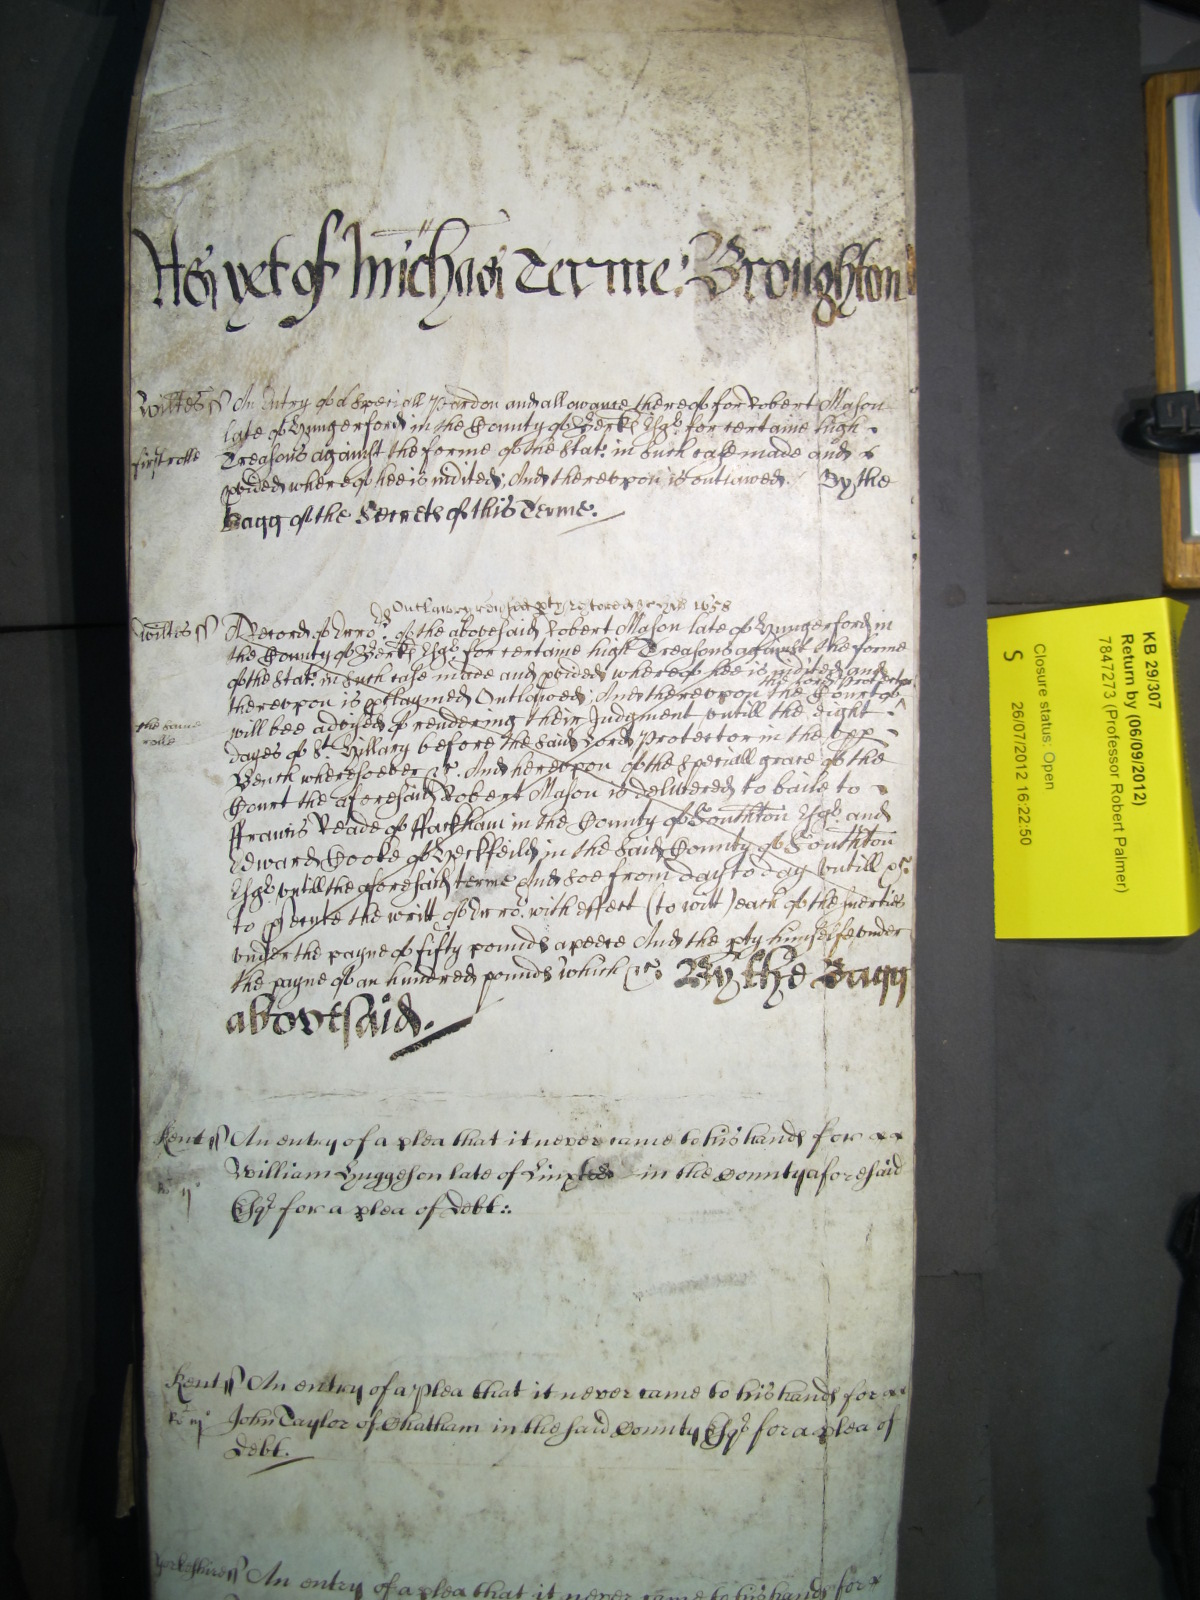 As yet of Michas Terme: Broughton
Wiltes ss An Entry of a Speciall Pardon and allowance thereof for Robert Mason
late of Hungerford in the County of Berks Esqr. for certaine high
first rolle
Treasons against the forme of the Stat: in Such case made and
pvided whereof hee is indited, And therevpon is outlawed. By the
Bagg of the Secrets of this Terme.
Outlawry 1658
Wiltes ss A Record of Erro:r of the abovesaid Robert Mason late of Hungerford in
the County of Berks Esqr. for certaine high Treasons against the forme
of the Stat: in Such case made and pvided whereof hee is indited and
the Lord Protector
therevpon is Outlawed; And therevpon the Court of
will bee advised of rendering their Judgment vntill the eight
the same
rolle
dayes of St. Hillary before the said Lord Protector in the vpp
Bench wheresoever &c. And herevpon of the Speciall grace of the
Court the aforesaid Robert Mason is delivered to baile to
ffrancis Reade of ffackham in the County of Southton Esqr. and
Edward Cooke of Heckfeild in the said County of Southton
Esqr. vntill the aforesaid terme And soe from day to day vntill &c.
to psecute the writt of Erro:r with effect (to witt) each of the
vnder the payne of fifty pounds apeece And the pty himselfe vnder
the payne of an hundred pounds which &c. By the Bagg
abovesaid.
Kent ss An entry of a plea that it never came to his hands for
William Huggeson late of in the County aforesaid
Ro ij
Esqr for a plea of Debt:.
Kent ss An entry of a plea that it never came to his hands for
Ro iij
John Taylor of Chatham in the said County Esqr for a plea of
Debt.
Yorkeshire ss An entry of a plea that it never came to his hands for
KB 29/307
Return by (06/09/2012)
7847273 (Professor Robert Palmer)
Closure status: Open
26/07/2012 16:22:50
S